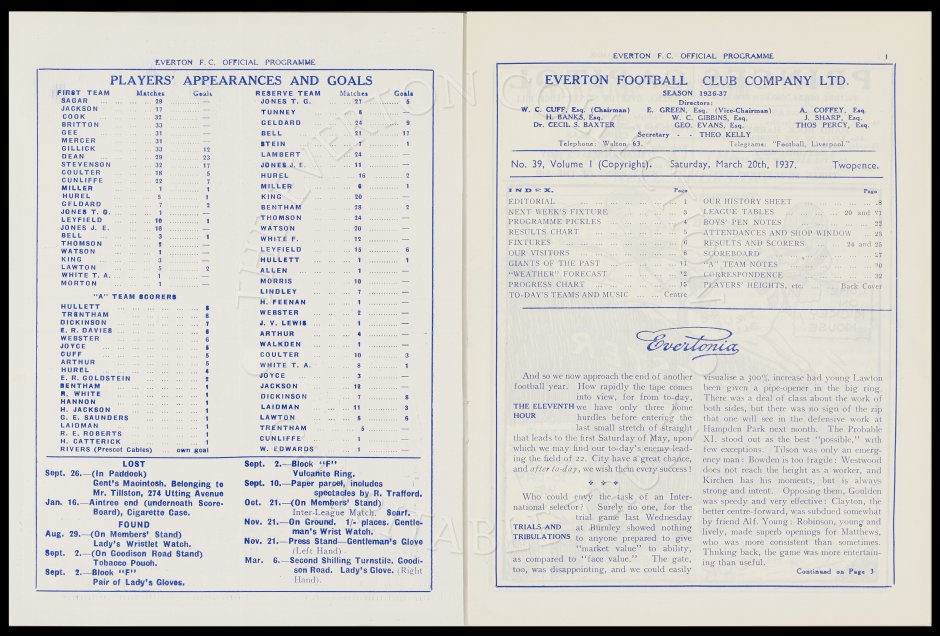 EVERTON F. C. OFFICIAL PROGRAMME
PLAYERS' APPEARANCES AND GOALS
FIRST TEAM Matches Goals
SAGAR 29 —
JACKSON 17 —
COOK 32 —
BRITTON 33 —
GEE 31 —
MERCER 31 —
GILLICK 33 12
DEAN 29 23
STEVENSON 32 17
COULTER 18 5
CUNLIFFE 22 7
MILLER 1 1
HUREL 5 1
GELDARD 7 2
JONES T. G. 1 —
LEYFIELD 10 1
JONES J. E. 16 —
BELL 3 1
THOMSON —
WATSON 1 —
KING 3 —
LAWTON 5 2
WHITE T. A. 1 —
MORTON 1 —
"A" TEAM SCORERS
HULLETT
TRENTHAM
DICKINSON 7
E. R. DAVIES 6
WEBSTER 6
JOYCE 5
CUFF 5
ARTHUR 5
HUREL 4
E. R. GOLDSTEIN 2
BENTHAM 1
R. WHITE 1
HANNON 1
H. JACKSON 1
G. E. SAUNDERS 1
LAIDMAN 1
R. E. ROBERTS 1
H. CATTERICK 1
RIVERS (Prescot Cables) own goal
RESERVE TEAM Matches Goals
JONES T. G. 21 5
TUNNEY —
GELDARD 24 9
BELL 21 17
STEIN 7 1
LAMBERT 24 —
JONES J. E. 11 —
HUREL 16 2
MILLER 6 1
KING 20 —
BENTHAM 28 2
THOMSON 24 —
WATSON 20 —
WHITE F. 12 —
LEYFIELD 15 6
HULLETT 1 1
ALLEN 1 —
MORRIS 10 —
LINDLEY 7 —
H. FEENAN 1 —
WEBSTER 2 —
J. V. LEWIS 1 —
ARTHUR 4 —
WALKDEN 1 —
COULTER 10 3
WHITE T. A. 8 1
JOYCE 3 —
JACKSON 12 —
DICKINSON 7 8
LAIDMAN 11 3
LAWTON 5 6
TRENTHAM 5 —
CUNLIFFE 1 —
W. EDWARDS 1 —
LOST
Sept. 26.—(In Paddock)
Gent's Macintosh. Belonging to
Mr. Tillston, 274 Utting Avenue
Jan. 16.—Aintree end (underneath Score-
Board), Cigarette Case.
FOUND
Aug. 29.—(On Members' Stand)
Lady's Wristlet Watch.
Sept. 2.—(On Goodison Road Stand)
Tobacco Pouch.
Sept. 2.—Block "F"
Pair of Lady's Gloves.
Sept. 2.—Block "F"
Vulcanite Ring.
Sept. 10.—Paper parcel, includes
spectacles by R. Trafford.
Oct. 21.—(On Members' Stand)
Inter-League Match. Scarf.
Nov. 21.—On Ground. 1/- places. Gentle-
man's Wrist Watch.
Nov. 21.—Press Stand—Gentleman's Glove
(Left Hand)
Mar. 6.—Second Shilling Turnstile. Goodi-
son Road. Lady's Glove. (Right
Hand).
EVERTON F. C. OFFICIAL PROGRAMME 1
EVERTON FOOTBALL CLUB COMPANY LTD.
SEASON 1936-37
Directors:
W. C. CUFF, Esq. (Chairman) E. GREEN, Esq. (Vice-Chairman) A. COFFEY, Esq.
H. BANKS, Esq. W. C. GIBBINS, Esq. J. SHARP, Esq.
Dr. CECIL S. BAXTER GEO. EVANS, Esq. THOS PERCY, Esq.
Secretary - - THEO KELLY
Telephone: Walton 63. Telegrams: "Football, Liverpool."
No. 39, Volume 1 (Copyright). Saturday, March 20th, 1937. Twopence.
INDEX. Page
EDITORIAL 1
NEXT WEEK'S FIXTURE 3
PROGRAMME PICKLES
RESULTS CHART 5
FIXTURES 6
OUR VISITORS
GIANTS OF THE PAST
"WEATHER" FORECAST 12
PROGRESS CHART 15
TO-DAY'S TEAMS AND MUSIC Centre
Page
OUR HISTORY SHEET 18
LEAGUE TABLES 20 and 21
BOYS' PEN NOTES 22
ATTENDANCES AND SHOP WINDOW 23
RESULTS AND SCORERS 24 and 25
SCOREBOARD 27
"A" TEAM NOTES
CORRESPONDENCE 32
PLAYERS' HEIGHTS, etc. Back Cover
Evertonia
And so we now approach the end of another
football year. How rapidly the tape comes
into view, for from to-day,
THE ELEVENTH HOUR
we have only three home
hurdles before entering the
last small stretch of straight
that leads to the first Saturday of May, upon
which we may find our to-day's enemy lead-
ing the field of 22. City have a great chance,
and after to-day, we wish them every success!
Who could envy the task of an Inter-
national selector? Surely no one, for the
trial game last Wednesday
TRIALS AND TRIBULATIONS
at Burnley showed nothing
to anyone prepared to give
"market value" to ability,
as compared to "face value." The gate,
too, was disappointing, and we could easily
visualise a 300% increase had young Lawton
been given a pipe-opener in the big ring.
There was a deal of class about the work of
both sides, but there was no sign of the zip
that one will see in the defensive work at
Hampden Park next month. The Probable
XI. stood out as the best "possible," with
few exceptions. Tilson was only an emerg-
ency man: Bowden is too fragile: Westwood
does not reach the height as a worker, and
Kirchen has his moments, but is always
strong and intent. Opposing them, Goulden
was speedy and very effective: Clayton, the
better centre-forward, was subdued somewhat
by friend Alf. Young: Robinson, young and
lively, made superb openings for Matthews,
who was more consistent than sometimes.
Thnking back, the game was more entertain-
ing than useful.
Continued on Page 3